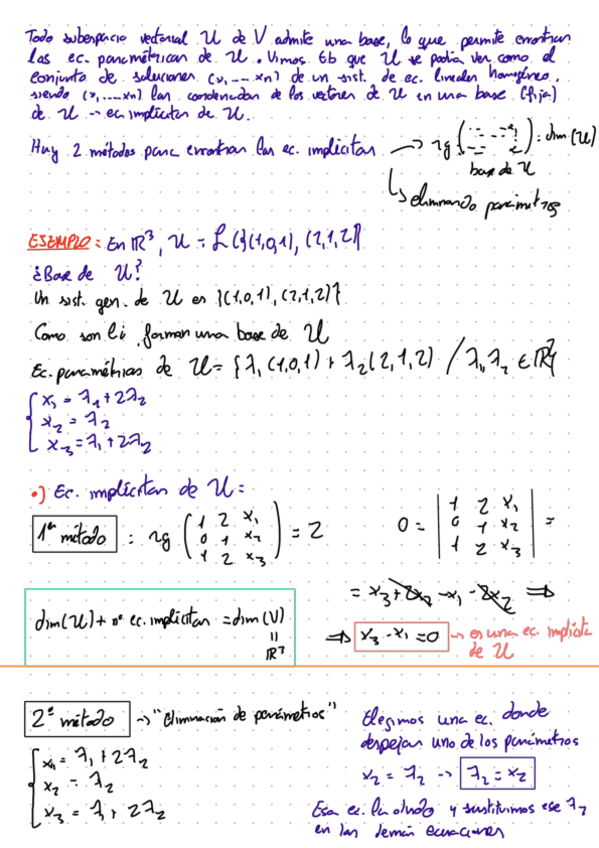 Todo subespacio vectorial U de V admite una base, lo que permite encontrar
las ec. paramétricas de U. Vimos 6b que U se podía ver como el
conjunto de soluciones (x₁, ... xn) de un sist. de ec. lineales homogéneo,
siendo (x₁, ... xn) las coordenadas de los vectores de U en una base (fija)
de U → ec. implícitas de U.
Hay 2 métodos para encontrar las ec. implícitas → rg ( ) = dim (U)
base de U
↳ eliminando parámetros
EJEMPLO: En ℝ³, U = L({(1,0,1), (2,1,2)}
¿Base de U?
Un sist. gen. de U es {(1,0,1), (2,1,2)}
Como son li, forman una base de U
Ec. paramétricas de U = {λ₁(1,0,1) + λ₂(2,1,2) / λ₁, λ₂ ∈ ℝ}
x₁ = λ₁ + 2λ₂
x₂ = λ₂
x₃ = λ₁ + 2λ₂
•) Ec. implícitas de U =
1er método : rg ( 1 2 x₁ / 0 1 x₂ / 1 2 x₃ ) = 2 0 = | 1 2 x₁ / 0 1 x₂ / 1 2 x₃ | =
= x₃ + 2x₂ - x₁ - 2x₂ ⇒
dim(U) + nº ec. implícitas = dim(V)
ℝ³
⇒ x₃ - x₁ = 0 → es una ec. implícita
de U
2º método → "Eliminación de parámetros"
x₁ = λ₁ + 2λ₂
x₂ = λ₂
x₃ = λ₁ + 2λ₂
Elegimos una ec. donde
despejar uno de los parámetros
x₂ = λ₂ → λ₂ = x₂
Esa ec. la olvido y sustituimos ese λ₂
en las demás ecuaciones